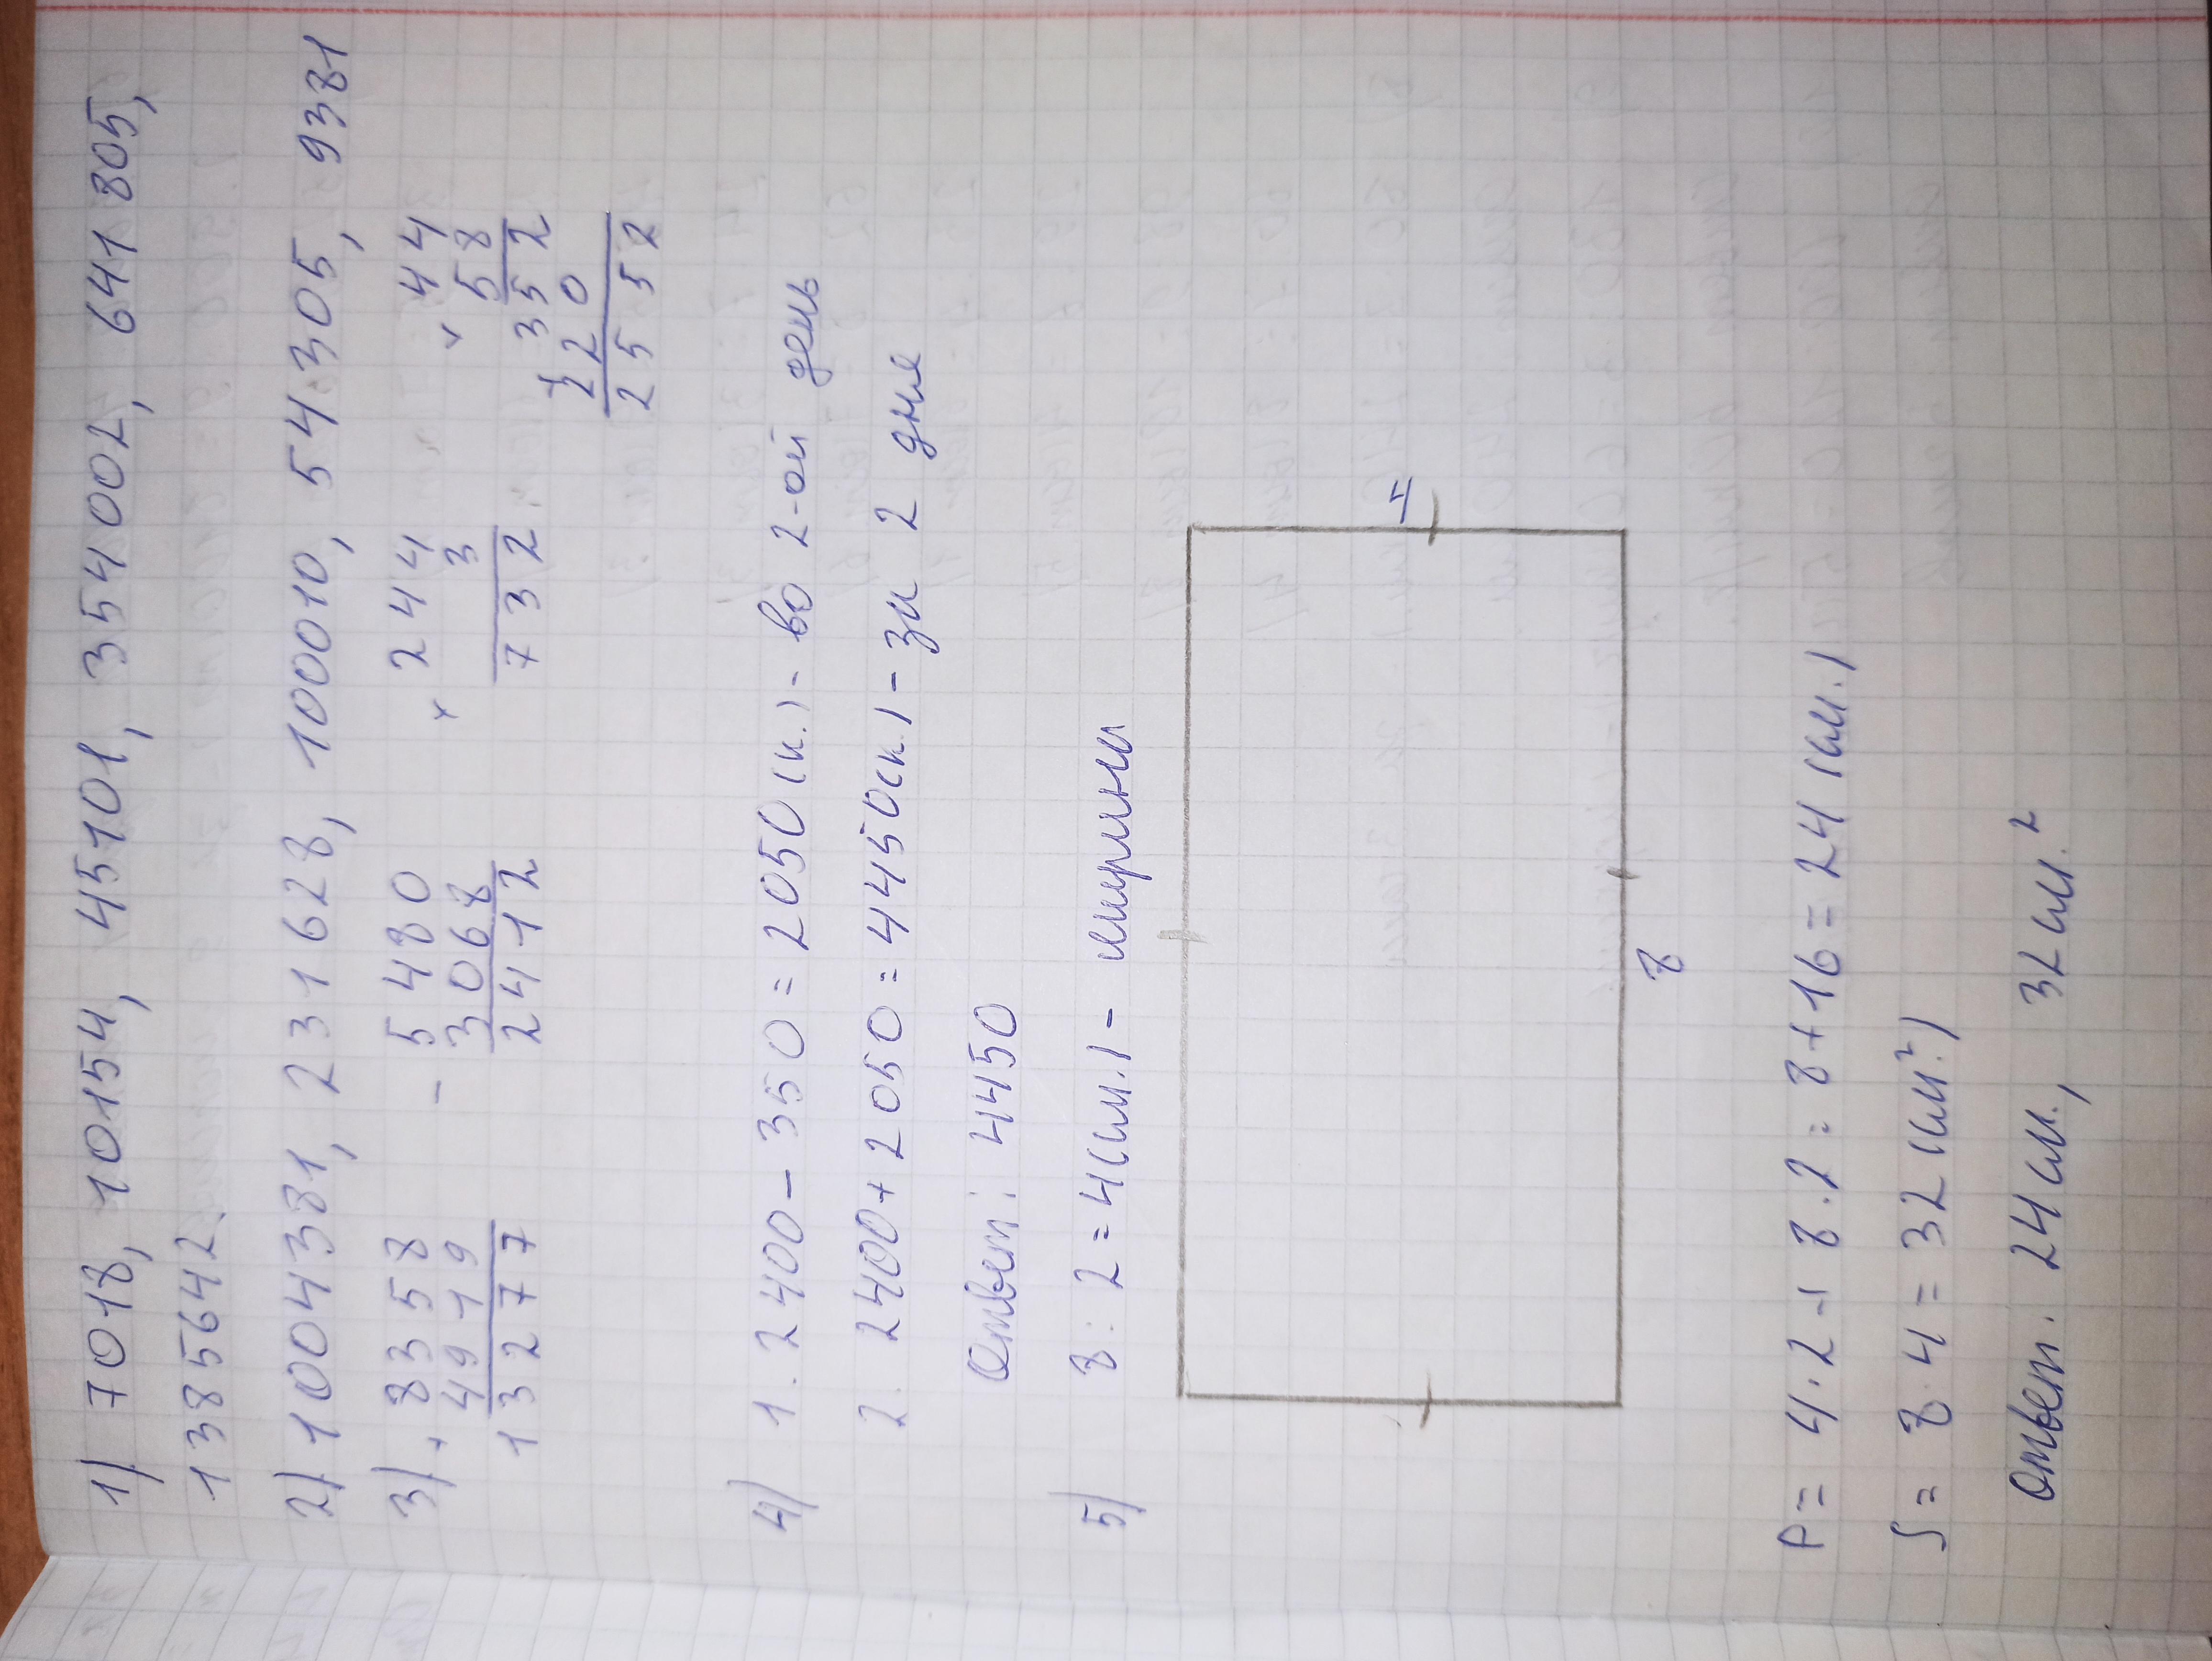 1) 7018, 10154, 45101, 354002, 641805,
1385642
2) 1004381, 231628, 100010, 54305, 9381
3) + 8358 - 5480 × 244 × 44
4919 3068 3 58
13277 2412 732 352
+ 220
2552
4) 1. 2400 - 350 = 2050 (к.) - во 2-ой день
2. 2400 + 2050 = 4450 (к.) - за 2 дня
Ответ: 4450
5) 8 : 2 = 4 (см.) - ширина
8
P = 4 · 2 + 8 · 2 = 8 + 16 = 24 (см.)
S = 8 · 4 = 32 (см².)
Ответ. 24 см., 32 см.²